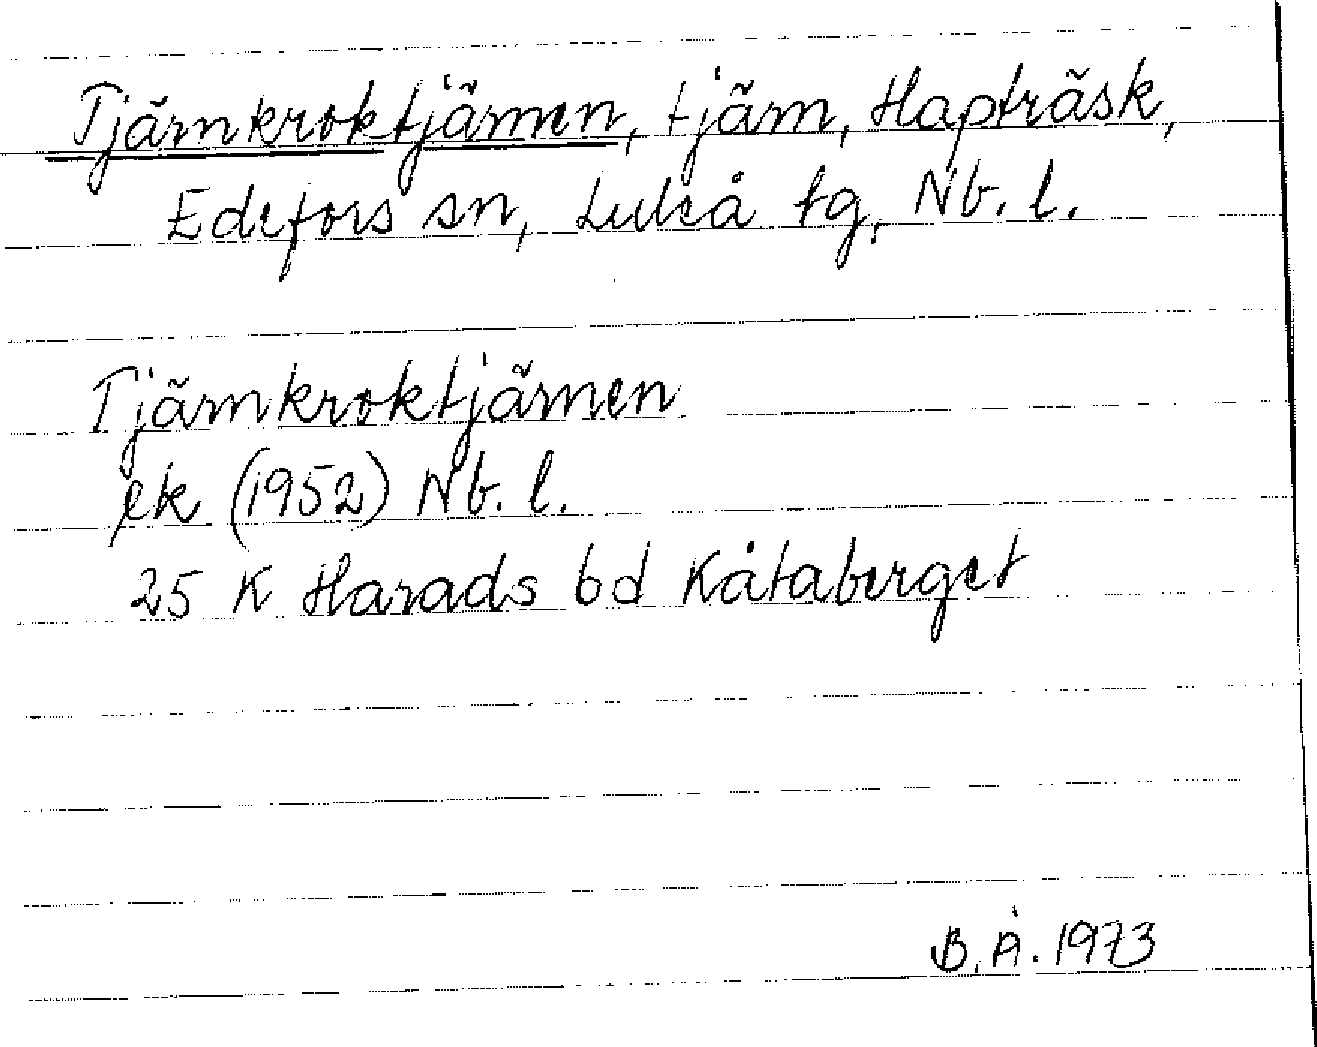 Tjärnkroktjärnen, tjärn, Hapträsk,
Edefors sn, Luleå tg, Nb. l.
Tjärnkroktjärnen
ek (1952) Nb. l.
25 K Harads bd Kåtaberget
B. Å. 1973